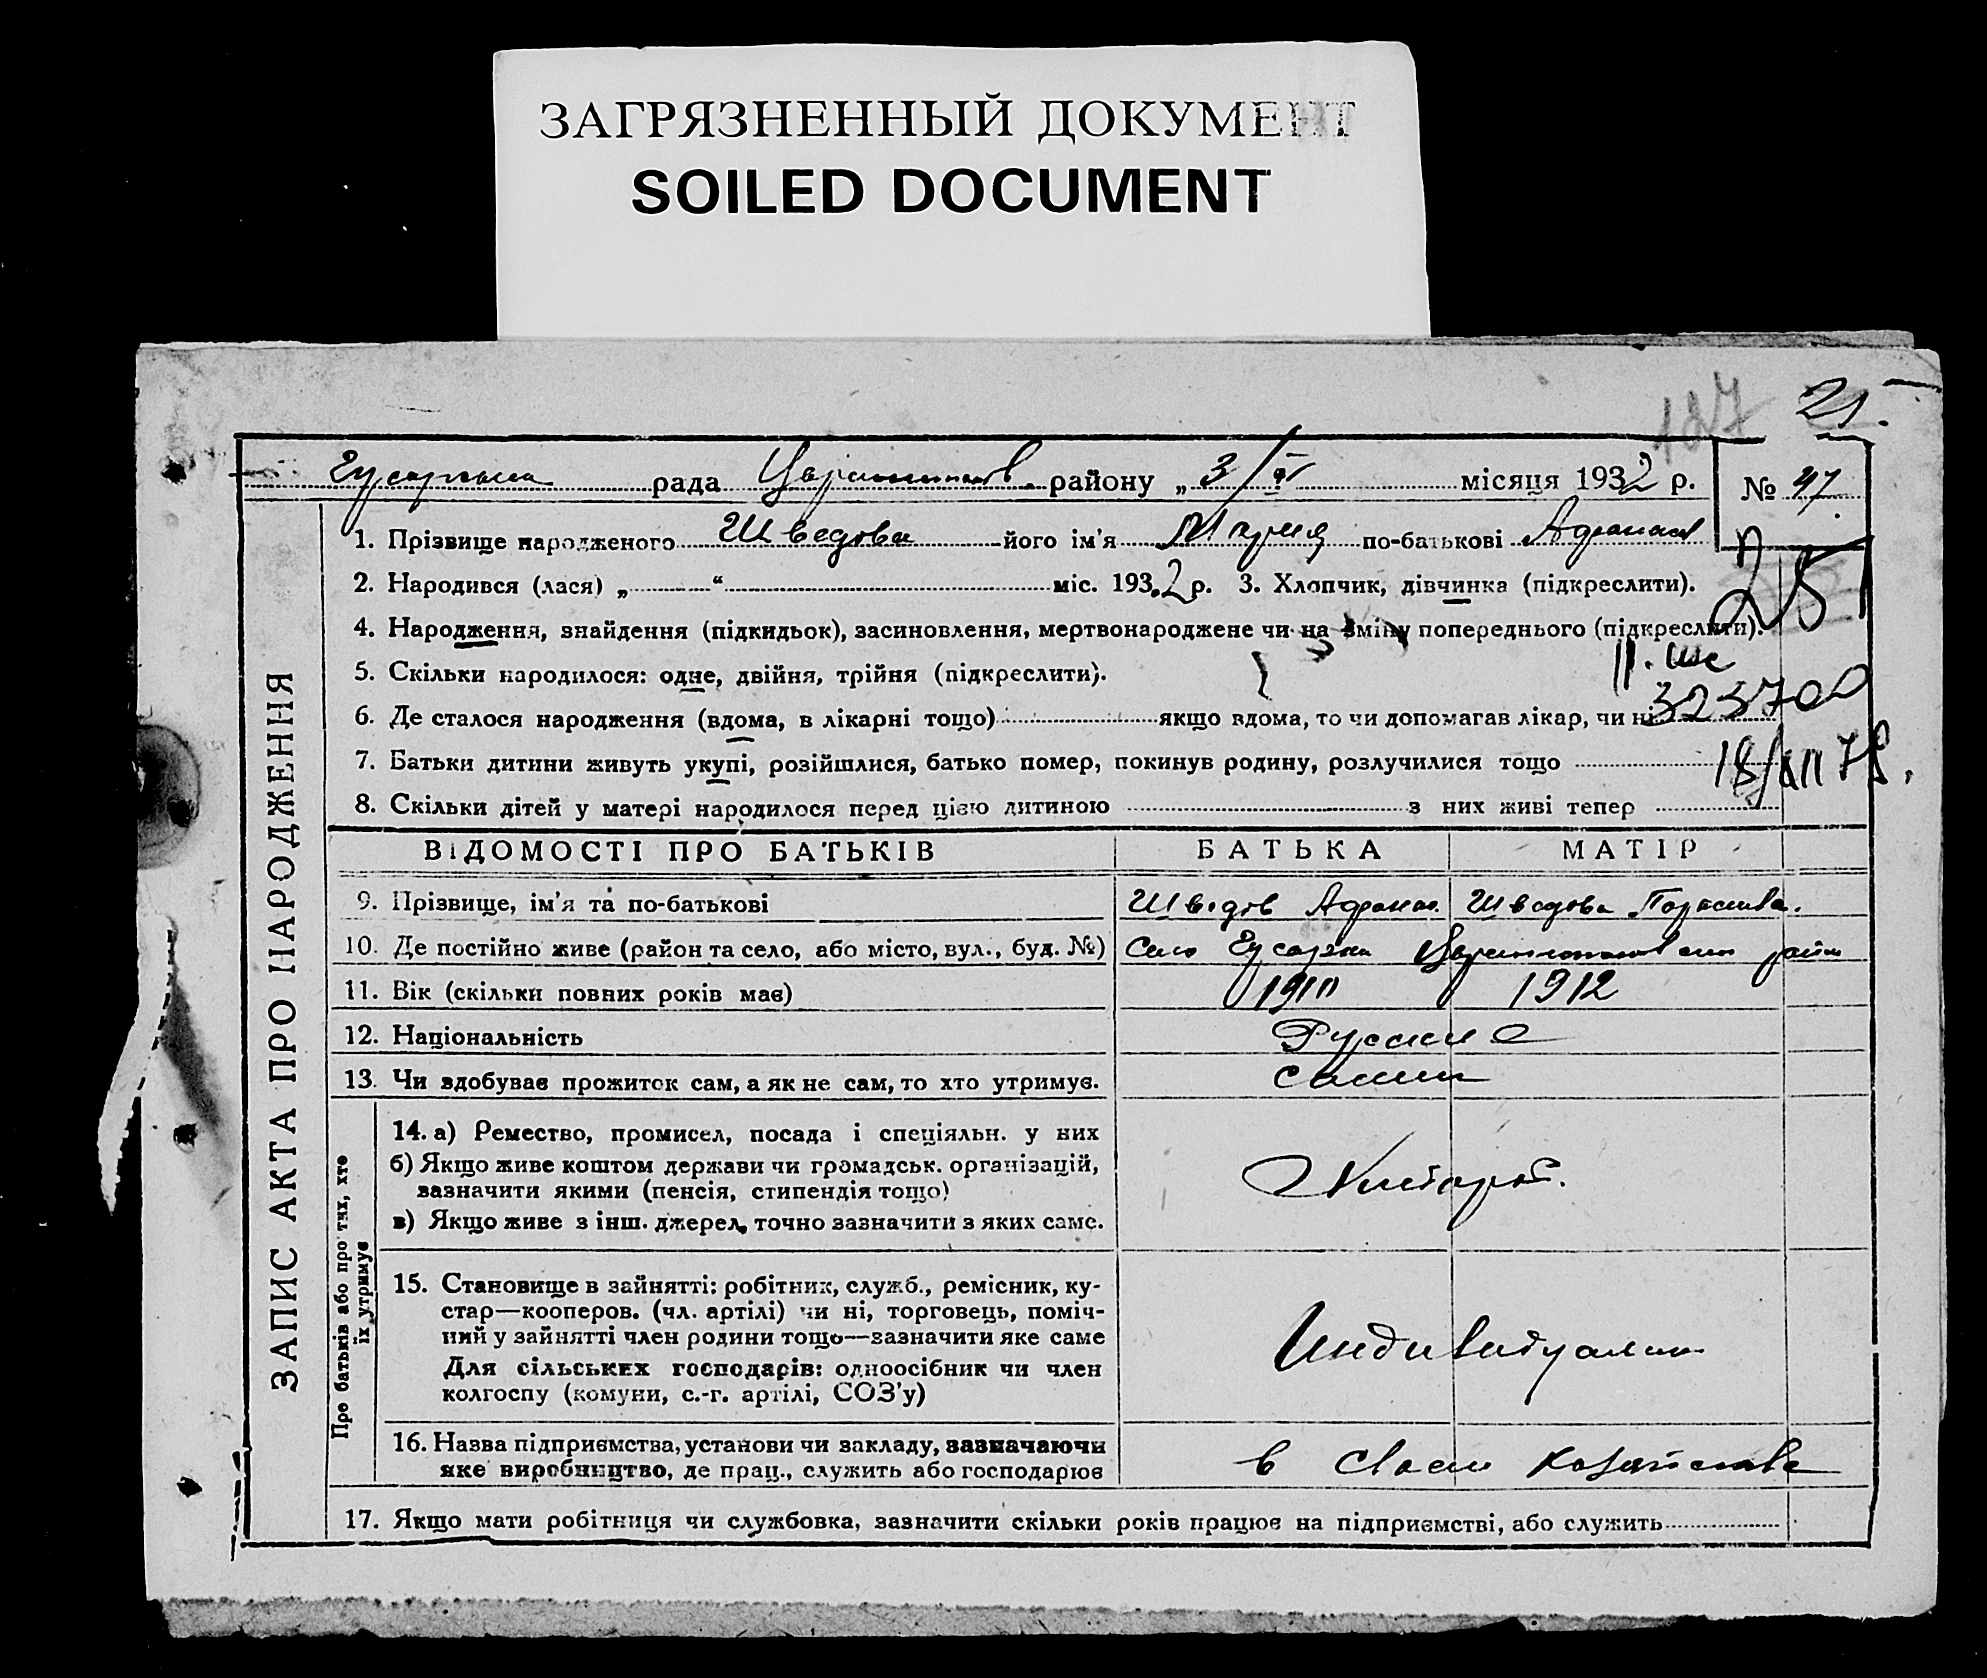 ЗАГРЯЗНЕННЫЙ ДОКУМЕНТ
SOILED DOCUMENT
127 21.
рада району „ 3/VI місяця 1932 р. № 47
1. Прізвище народженого Шведова його ім'я Мария по-батькові Афанас
2. Народився (лася) „ “ міс. 1932 р. 3. Хлопчик, дівчинка (підкреслити).
4. Народження, знайдення (підкидьок), засиновлення, мертвонароджене чи на зміну попереднього (підкреслити).
5. Скільки народилося: одне, двійня, трійня (підкреслити).
6. Де сталося народження (вдома, в лікарні тощо) якщо вдома, то чи допомагав лікар, чи ні
323700
7. Батьки дитини живуть укупі, розійшлися, батько помер, покинув родину, розлучилися тощо
18/XII 78.
8. Скільки дітей у матері народилося перед цією дитиною з них живі тепер
ВІДОМОСТІ ПРО БАТЬКІВ БАТЬКА МАТІР
9. Прізвище, ім'я та по-батькові Шведов Афанас. Шведова
10. Де постійно живе (район та село, або місто, вул., буд. №) село
11. Вік (скільки повних років має) 1910 1912
12. Національність Русские
13. Чи здобуває прожиток сам, а як не сам, то хто утримує. сами
Про батьків або про тих, хто
їх утримує
14. а) Ремество, промисел, посада і спеціяльн. у них
б) Якщо живе коштом держави чи громадськ. організацій,
зазначити якими (пенсія, стипендія тощо)
в) Якщо живе з інш. джерел, точно зазначити з яких саме.
Хлебороб.
15. Становище в зайнятті: робітник, служб., ремісник, ку-
стар—кооперов. (чл. артілі) чи ні, торговець, поміч-
ний у зайнятті член родини тощо—зазначити яке саме
Для сільських господарів: одноосібник чи член
колгоспу (комуни, с.-г. артілі, СОЗ'у)
16. Назва підприємства, установи чи закладу, зазначаючи
яке виробництво, де прац., служить або господарює
в своем хозяйстве
17. Якщо мати робітниця чи службовка, зазначити скільки років працює на підприємстві, або служить
ЗАПИС АКТА ПРО НАРОДЖЕННЯ